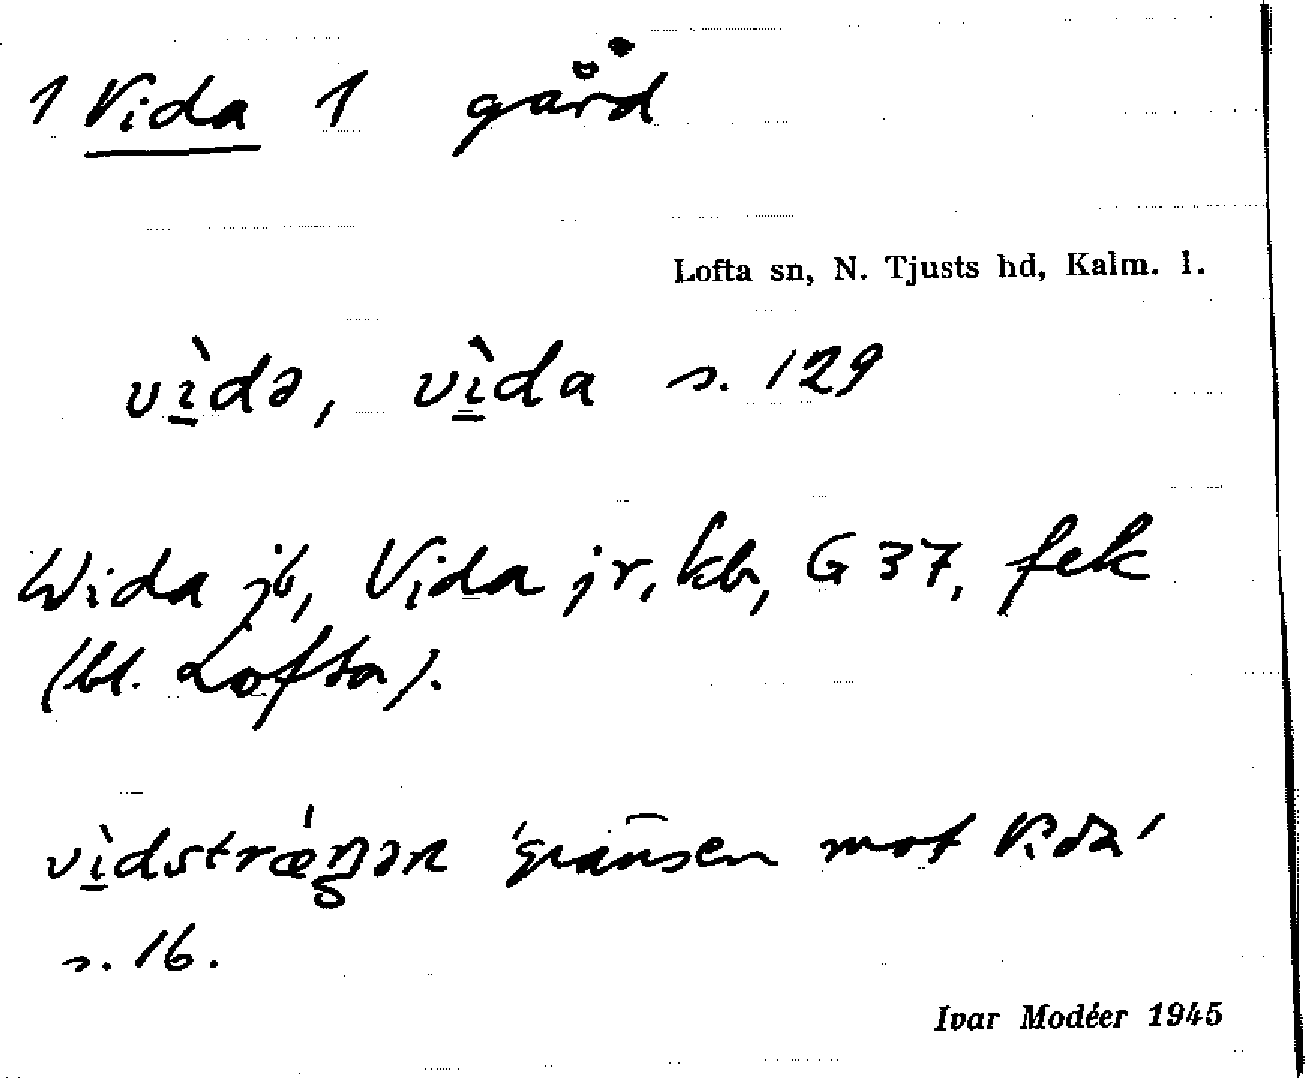 1 Vida 1 gård
Lofta sn, N. Tjusts hd, Kalm. l.
vìdə, vìda s. 129
Wida jb, Vida jr, kb, G 37, fek
(bl. Lofta).
vìdstrǽŋən 'gränsen mot Vida'
s. 16.
Ivar Modéer 1945